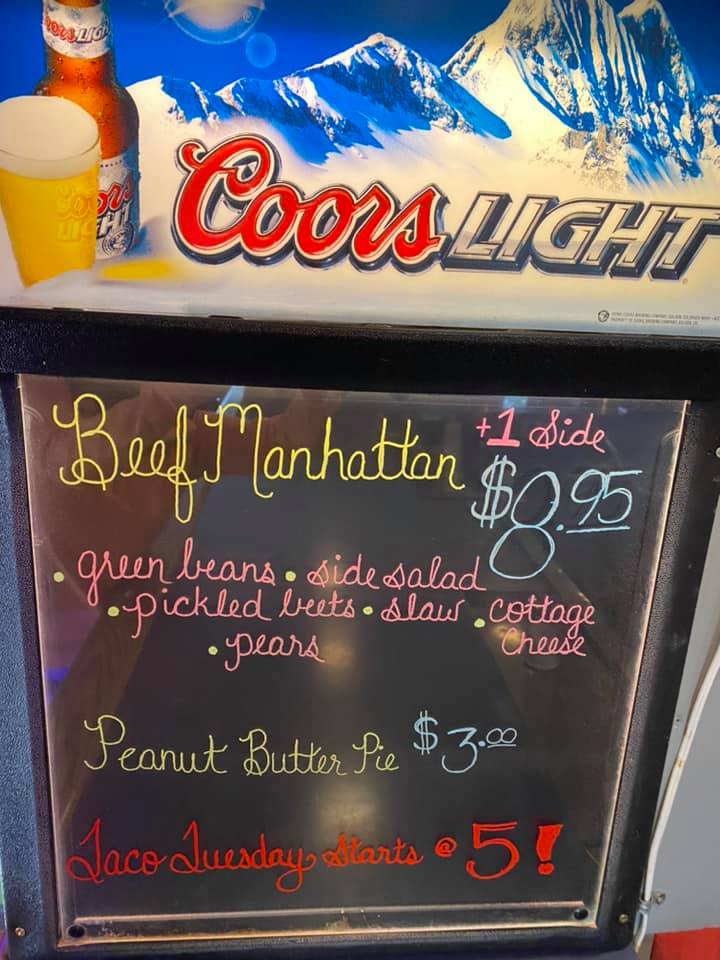 Coors LIGHT
Coors
LIGHT
Coors
LIGHT
Coors LIGHT
Beef Manhattan +1 Side
$8.95
• green beans • side salad
• pickled beets • slaw • cottage
• pears Cheese
Peanut Butter Pie $3.00
Taco Tuesday Starts @ 5!